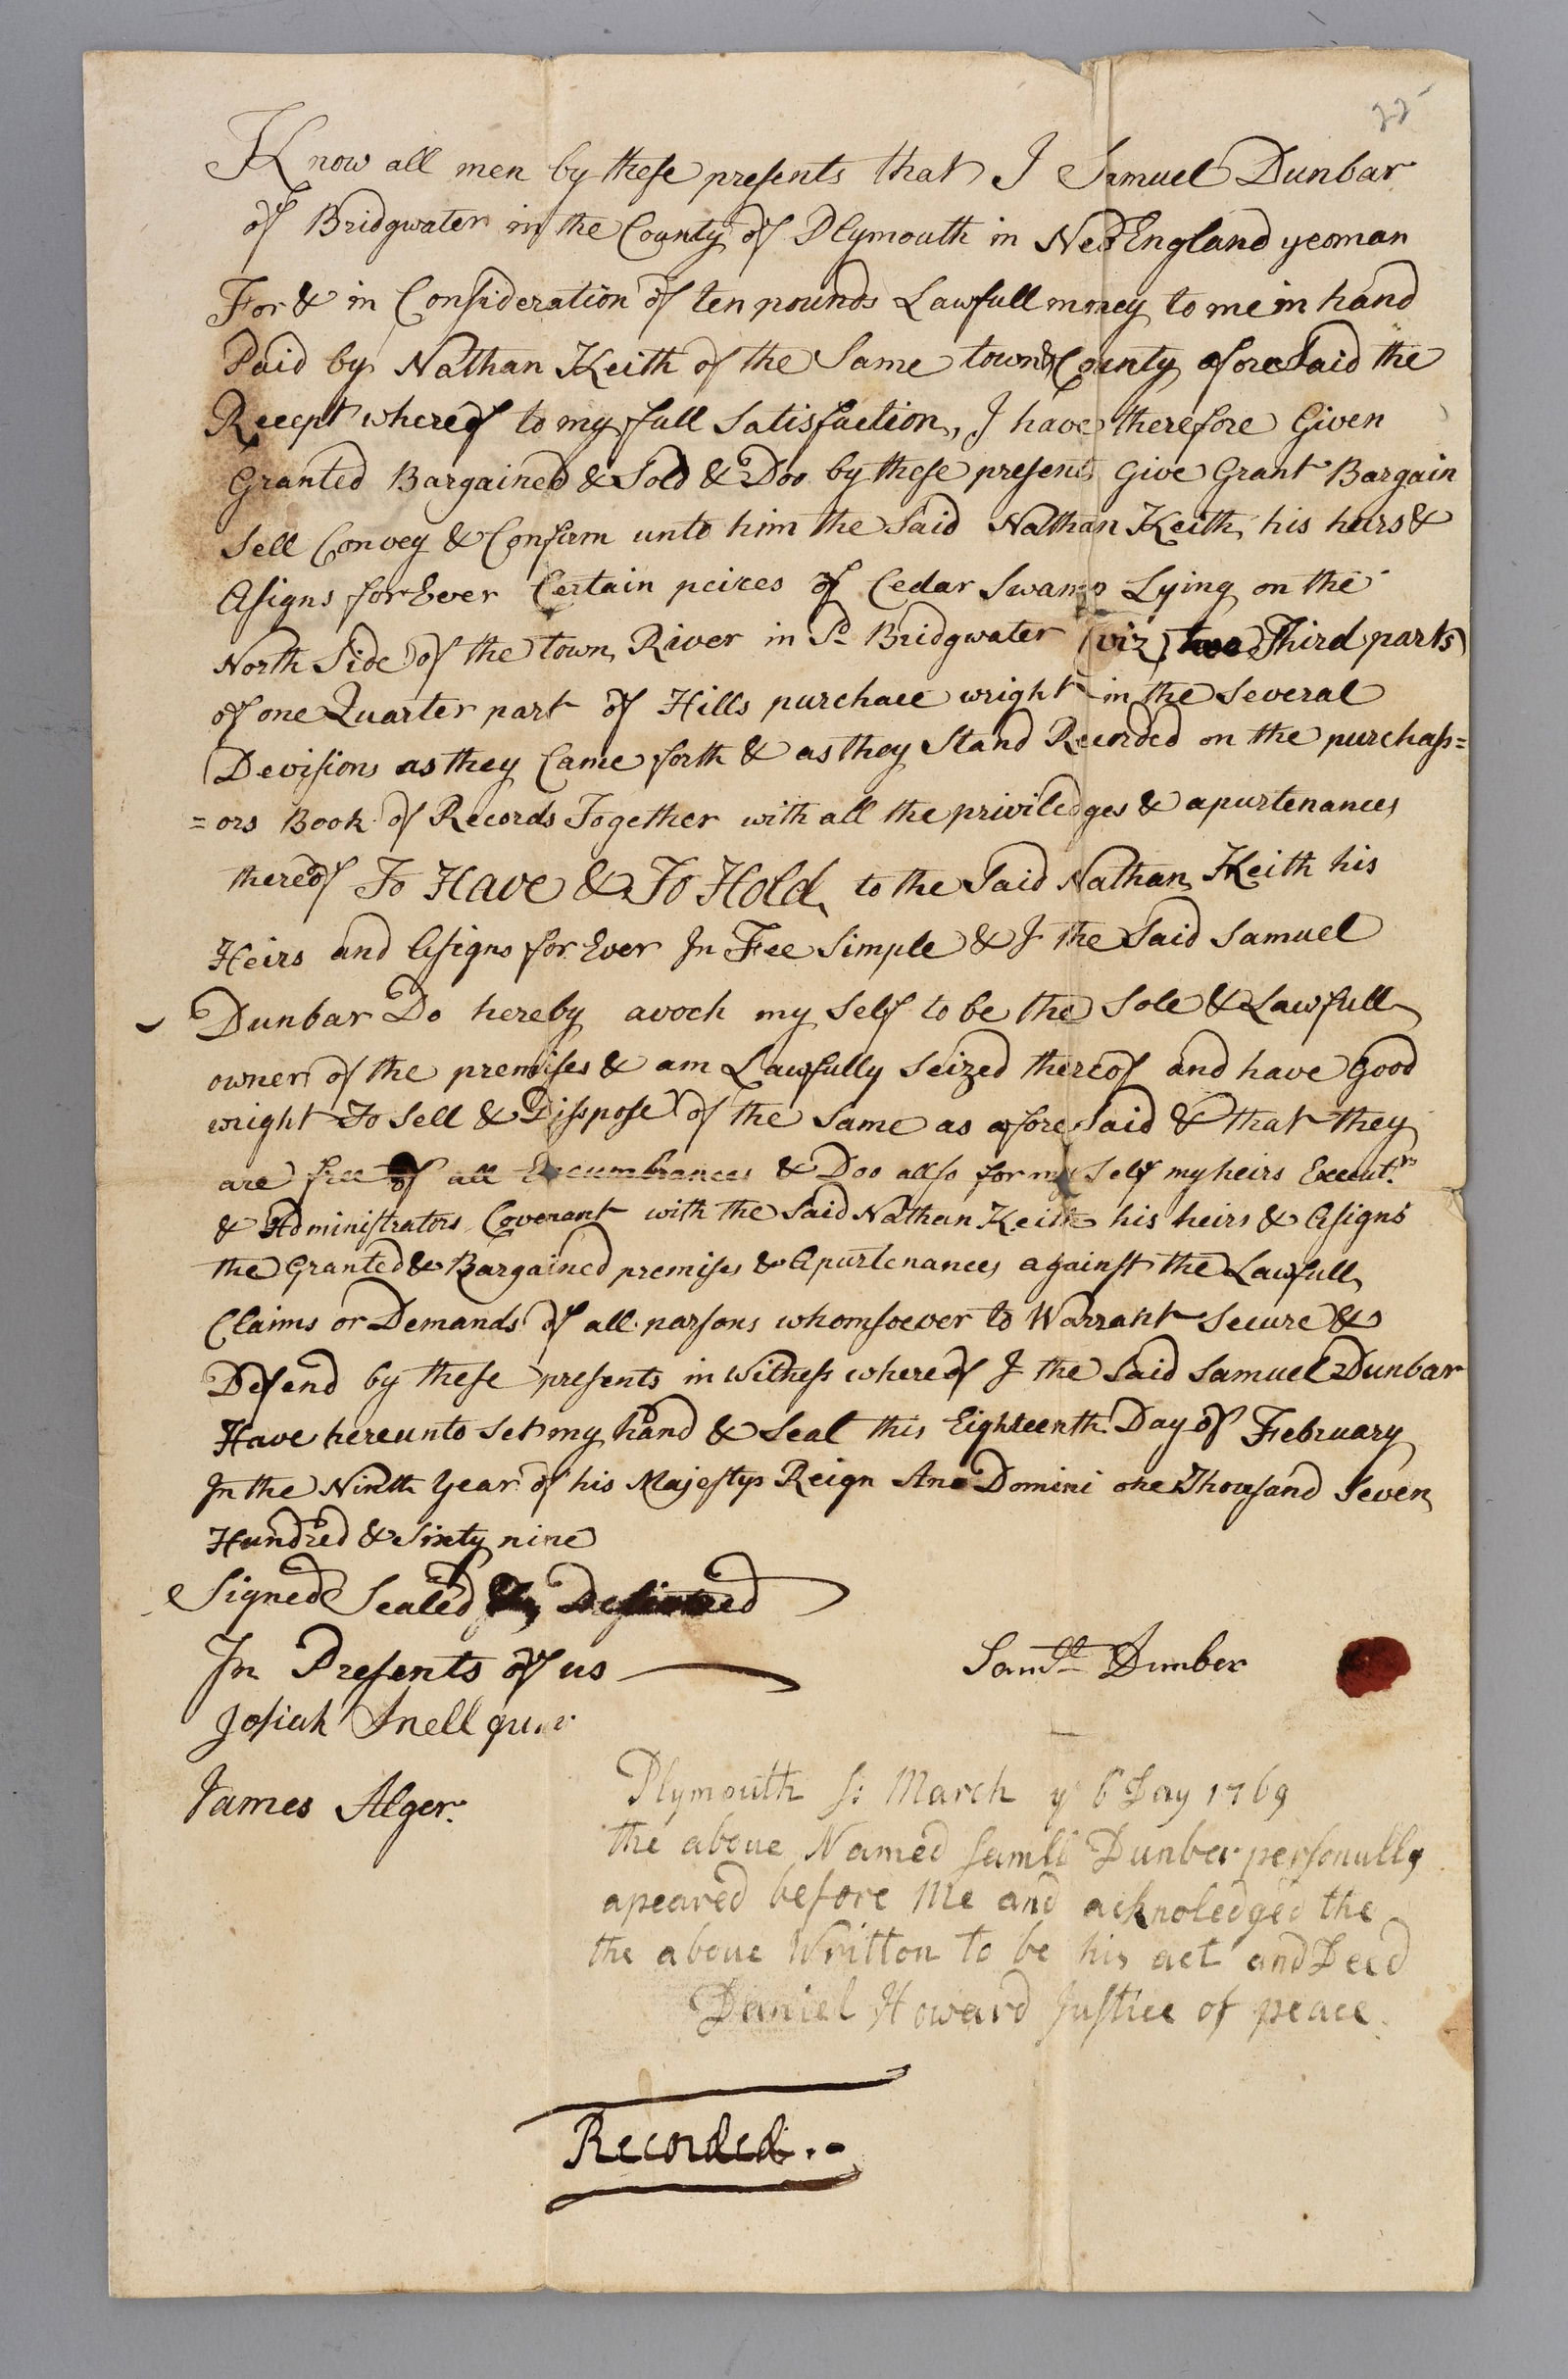 22
Know all men by these presents that I Samuel Dunbar
of Bridgwater in the County of Plymouth in New England yeoman
For & in Consideration of ten pounds Lawfull money to me in hand
Paid by Nathan Keith of the Same town & County afore Said the
Recept whereof to my full Satisfaction, I have therefore Given
Granted Bargained & Sold & Doo by these presents Give Grant Bargain
Sell Convey & Confirm unto him the Said Nathan Keith his heirs &
Asigns for Ever Certain peices of Cedar Swamp Lying on the
North Side of the town River in Sd Bridgwater (viz) two Third parts
of one Quarter part of Hills purchace wright in the Several
Devisions as they Came forth & as they Stand Recorded on the purchass=
=ors Book of Records Together with all the priviledges & apurtenances
thereof To Have & To Hold to the Said Nathan Keith his
Heirs and Asigns for Ever In Fee Simple & I the Said Samuel
Dunbar Do hereby avoch my Self to be the Sole & Lawfull
owner of the premises & am Lawfully Seized thereof and have Good
wright To Sell & Disspose of the Same as afore Said & that they
are free of all Encumbrances & Doo allso for my Self my heirs Executrs
& Administrators Covenant with the Said Nathan Keith his heirs & Asigns
the Granted & Bargained premises & Apurtenances against the Lawfull
Claims or Demands of all parsons whomsoever to Warrant Secure &
Defend by these presents in Witness whereof I the Said Samuel Dunbar
Have hereunto Set my hand & Seal this Eighteenth Day of February
In the Ninth Year of his Majestys Reign Ano Domini one Thousand Seven
Hundred & Sixty nine
Signed Sealed Delivered
In Presents of us
Samll Dunber
Josiah Snell
James Alger
Plymouth ss: March ye 6 Day 1769
the above Named Samll Dunber personully
apeared before Me and acknoledged the
the above Written to be his act and Deed
Daniel Howard Justice of peace
Recorded.-